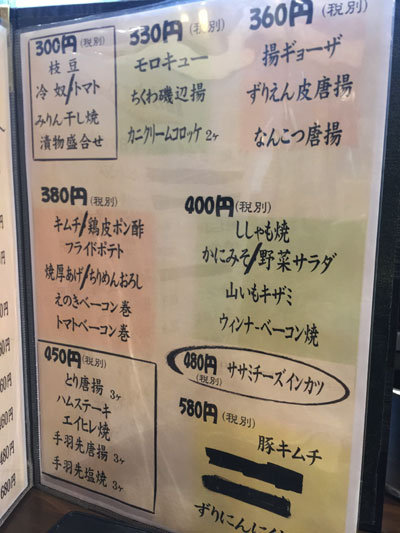 300円(税別)
枝豆
冷奴/トマト
みりん干し焼
漬物盛合せ
330円(税別)
モロキュー
ちくわ磯辺揚
カニクリームコロッケ 2ヶ
360円(税別)
揚ギョーザ
ずりえん皮唐揚
なんこつ唐揚
380円(税別)
キムチ/鶏皮ポン酢
フライドポテト
焼厚あげ/ちりめんおろし
えのきベーコン巻
トマトベーコン巻
400円(税別)
ししゃも焼
かにみそ/野菜サラダ
山いもキザミ
ウィンナーベーコン焼
450円(税別)
とり唐揚 3ヶ
ハムステーキ
エイヒレ焼
手羽先唐揚 3ヶ
手羽先塩焼 3ヶ
480円(税別) ササミチーズインカツ
580円(税別)
豚キムチ
ずりにんにく
480円
680円